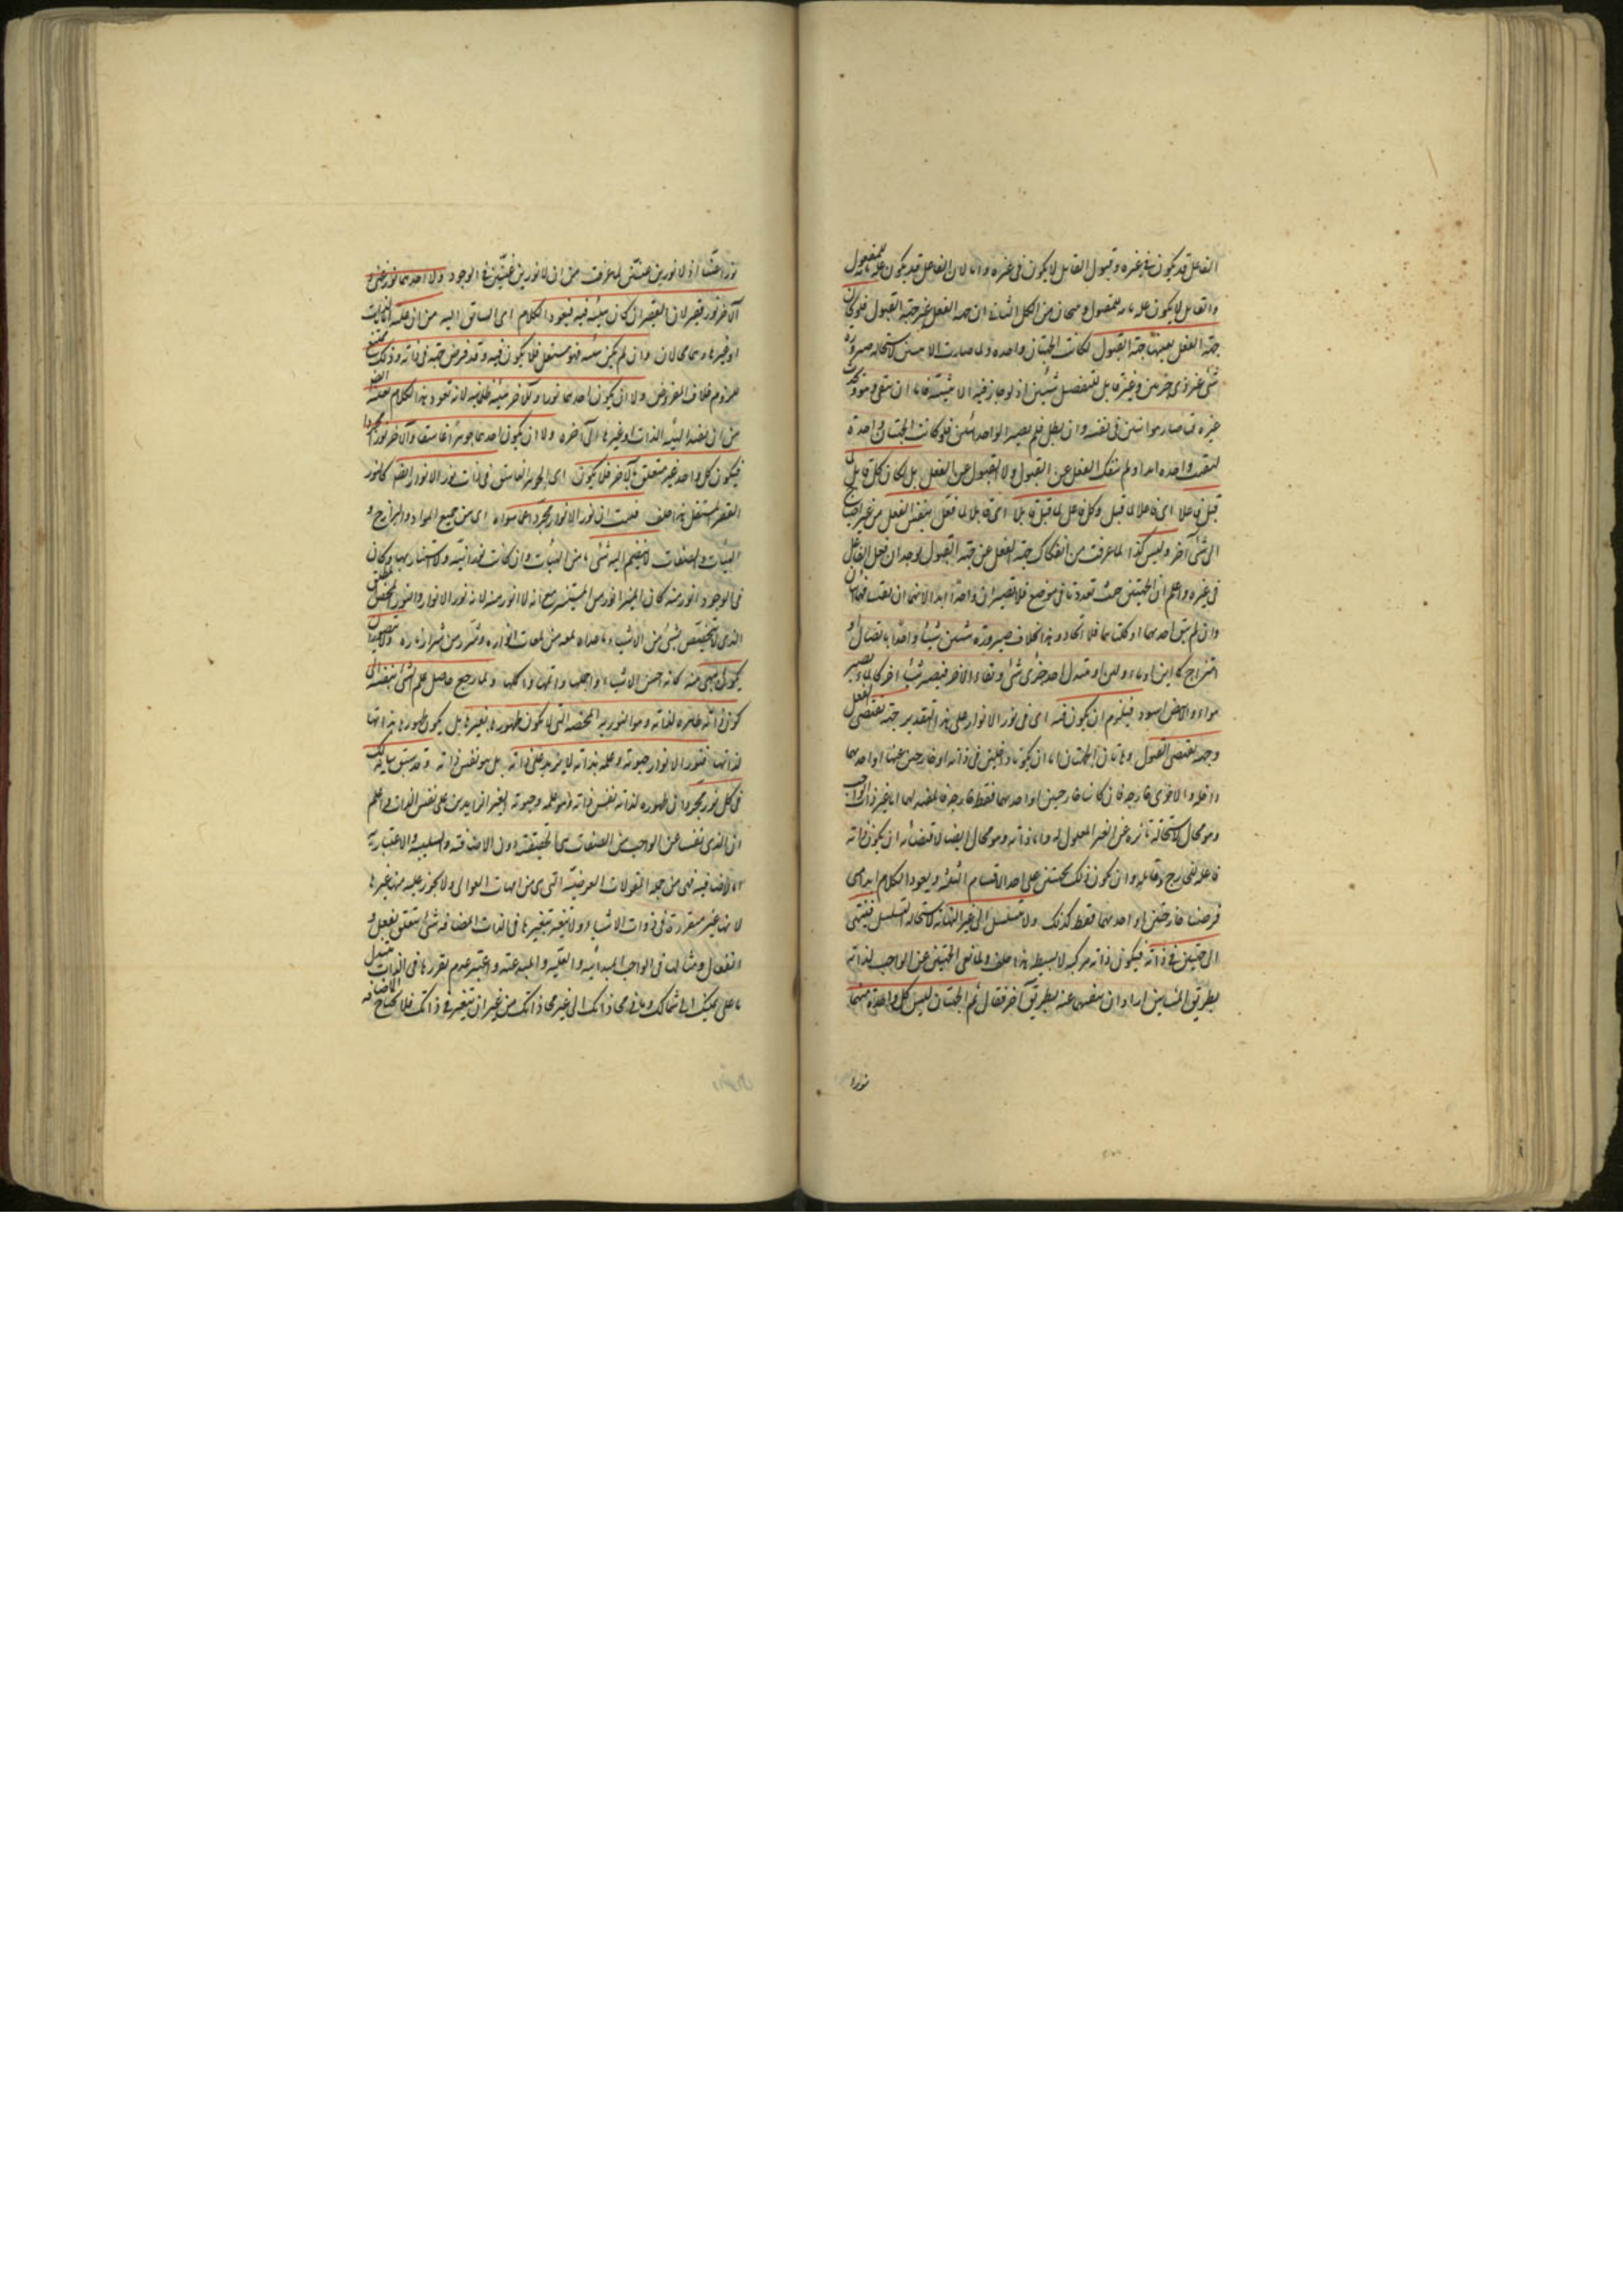 الفاعل قد يكون في غيره وقبول القابل لا يكون في غيره واما لان الفاعل قد يكون علة للمفعول
والقابل لا يكون علة تامة للمقبول من الكل اثبات ان جهة الفعل غير جهة القبول فلو كان
جهة الفعل بعينها جهة القبول لكانت الجهتان واحدة ولما صارت الاثنين لاستحالة صيرورة
شيء غير ذي جزئين وغير قابل للتفصيل شيئين اذ لو جاز فيه الاثنينية فاما ان بقي هو وحدث
غيره فما صار هو اثنين في نفسه وان بطل فلم يصر الواحد اثنين فلو كانت الجهتان واحدة
لبقيت واحدة ابدا ولم ينفك الفعل عن القبول ولا القبول عن الفعل بل لكان كل قابل
قبل فاعلا اى فاعلا لما قبل وكل فاعل لما فعل قابلا اى قابلا لما فعل بنفس الفعل من غير احتياج
الى شيء آخر وليس كذا لما عرفت من انفكاك جهة الفعل عن جهة القبول لوجدان فعل الفاعل
في غيره واعلم ان الجهتين حيث تعددتا في موضع فلا تصيران واحدة ابدا لانهما ان بقيتا فهما اثنان
وان لم تبق احدهما او كلتاهما فلا اتحاد وهذا بخلاف صيرورة شيئين شيئا واحدا باتصال او
امتزاج كما بين او تبدل احد جزئي شيء وبقاء الآخر فيصير شيئا آخر كالماء يصير
هواء والابيض اسود فيلزم ان يكون فيه اى في نور الانوار على هذا التقدير جهة تقتضي الفعل
وجهة تقتضي القبول وهاتان الجهتان اما ان تكونا داخلتين في ذاته او خارجتين عنها او احدهما
داخلة والاخرى خارجة فان كانتا خارجتين او احدهما فقط خارجة فالمفيد لهما اما غير ذات الواجب
وهو محال لاستحالة تاثره عن الغير المعلول له واما ذاته وهو محال ايضا لاقتضائه ان يكون ذاته
فاعلة للخارج وقابلة وان تكون ذلك بجهتين على احد الاقسام الثلثة ويعود الكلام
فرضنا خارجتين او احدهما فقط كذلك ولا يتسلسل الى غير النهاية لاستحالة التسلسل فينتهي
الى جهتين في ذاته فيكون ذاته مركبة لا بسيطة هذا خلف ولما نفى الجهتين عن الواجب لذاته
بطريق المشائين اراد ان ينفيهما عنه بطريق آخر فقال ثم الجهتان ليس كل واحدة منهما
نورا
نورا غنيا اذ لا نورين غنيين لما عرفت من ان لا نورين غنيين في الوجود ولا احدهما نور غني و
الآخر نور فقير لان الفقير ان كان هيئة فيه فيعود الكلام اى السابق اليه من ان علته الذات
او غيرها وهما محالان وان لم يكن هيئة فهو مستقل فلا يكون فيه وقد فرض جهة في ذاته وذلك ممتنع
للزوم خلاف المفروض ولا ان يكون احدهما نورا والآخر هيئة ظلمانية لانه يعود هذا الكلام بعينه ايضا
من ان مفيد الهيئة الذات او غيرها الى آخره ولا ان يكون احدهما جوهرا غاسقا والآخر نورا مجردا
فيكون كل واحد غير متعلق بالآخر فلا يكون اى الجوهر الغاسق في ذات نور الانوار ايضا كالنور
الفقير المستقل هذا خلف فعلمت ان نور الانوار مجرد عما سواه اى من جميع المواد والبرازخ و
الهيئات والصفات لا ينضم اليه شيء ما من الهيئات وان كانت نورانية ولا يتصور ان يكون
في الوجود انور منه كما في المنير انور من المستنير مع انه لا انور منه لانه نور الانوار والنور المحض المطلق
الذي لا يتخصص بشيء من الاشياء وما عداه لمعة من لمعات انواره وشرر من شرار ناره ولا يتصور ان
يكون ابهى منه كانه احسن الاشياء واجملها واتمها واكملها ولما رجع حاصل علم الشيء بنفسه الى
كون ذاته ظاهرة لذاته وهو النورية المحضة التي لا يكون ظهورها بغيرها بل يكون ظهورها بذاتها
لذاتها فنور الانوار حيوته وعلمه بذاته لا يزيد على ذاته بل هو نفس ذاته وقد سبق بيانه لك
في كل نور مجرد ان ظهوره لذاته نفس ذاته وهو علمه وحيوته الغير الزائدين على نفس الذات واعلم
ان الذي ننفيه عن الواجب من الصفات هي الحقيقية دون الاضافية والسلبية والاعتبارية
اما الاضافية فهي من جملة المقولات العرضية التي هي من امهات العوالي ولا يجوز عليه منها غيرها
لانها غير متقررة في ذوات الاشياء ولا تتغير بتغيرها في الذات المضافة شيء يتعلق بفعل و
انفعال ومثالها في الواجب المبدأية والعلية والمبدعية واعتبر عدم تقررها في الذات بتبدل
ما على يمينك الى شمالك وما في محاذاتك الى غير محاذاتك من غير ان تتغير في ذاتك فلا تحتاج الاضافة